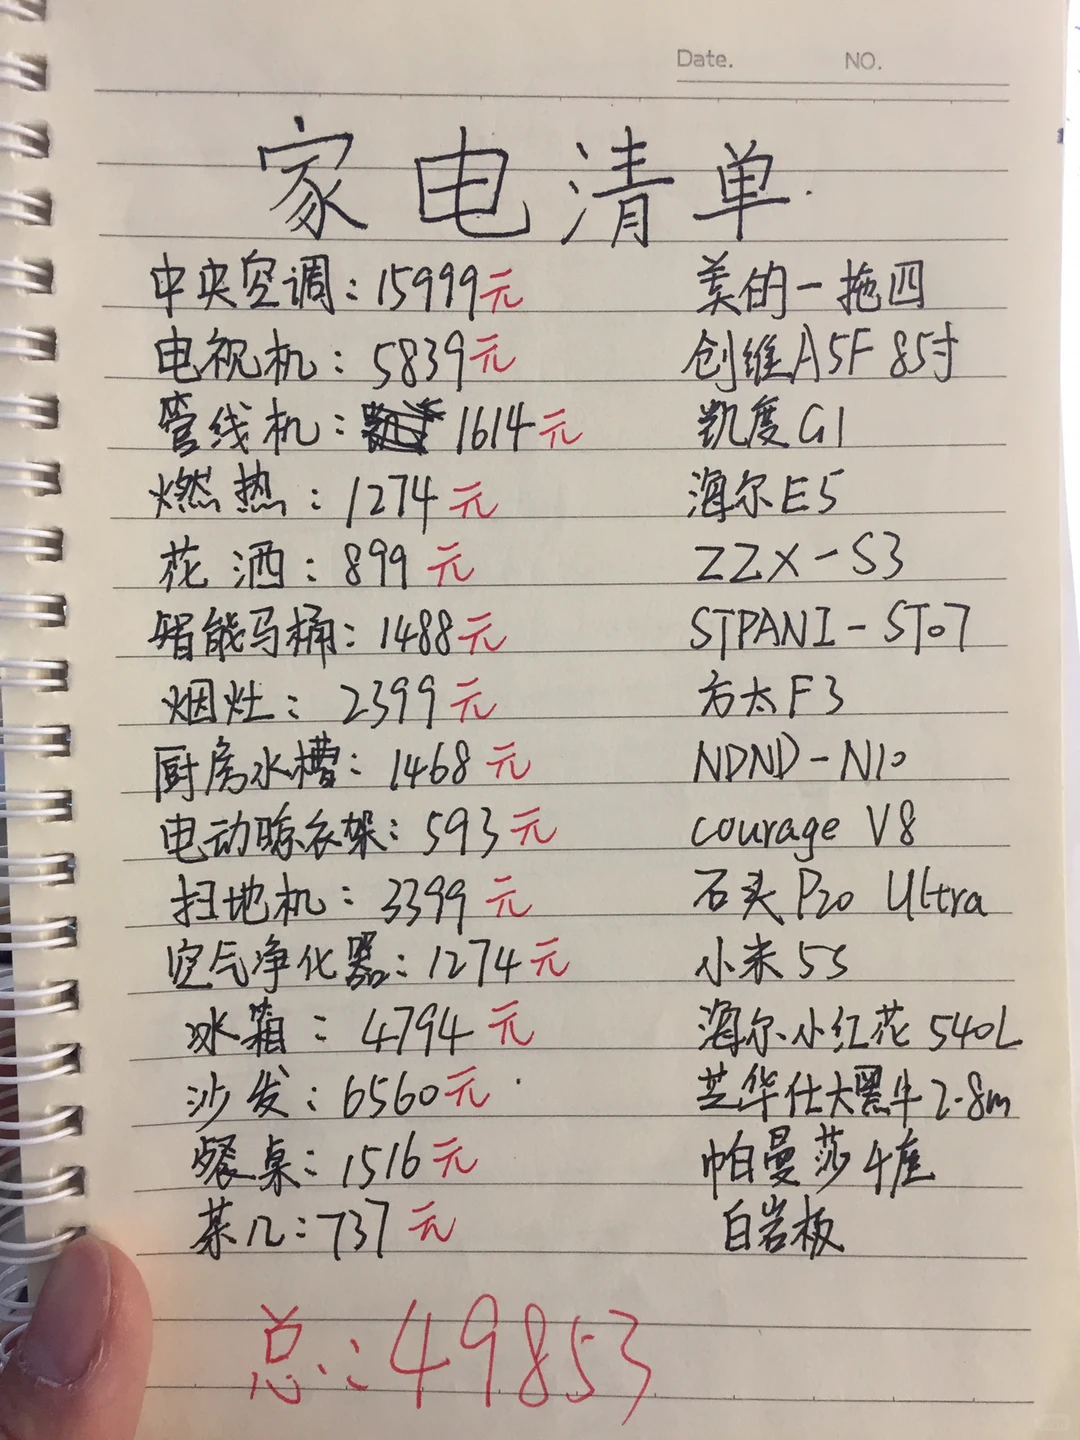 Date. NO.
家电清单
中央空调：15999元 美的一拖四
电视机：5839元 创维A5F 85寸
管线机：1614元 凯度G1
燃热：1274元 海尔E5
花洒：899元 ZZX-S3
智能马桶：1488元 STPANI-ST07
烟灶：2399元 方太F3
厨房水槽：1468元 NDND-N10
电动晾衣架：593元 courage V8
扫地机：3399元 石头P20 Ultra
空气净化器：1274元 小米5S
冰箱：4794元 海尔小红花540L
沙发：6560元 芝华仕大黑牛2.8m
餐桌：1516元 帕曼莎4座
茶几：737元 白岩板
总：49853